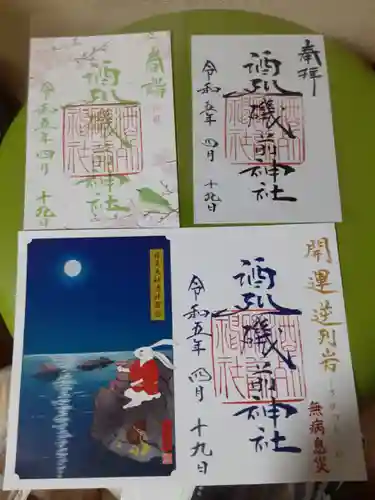 奉拝
酒列磯前神社
令和五年四月十九日
奉拝
酒列磯前神社
令和五年四月十九日
開運逆列岩
無病息災
酒列磯前神社
令和五年四月十九日